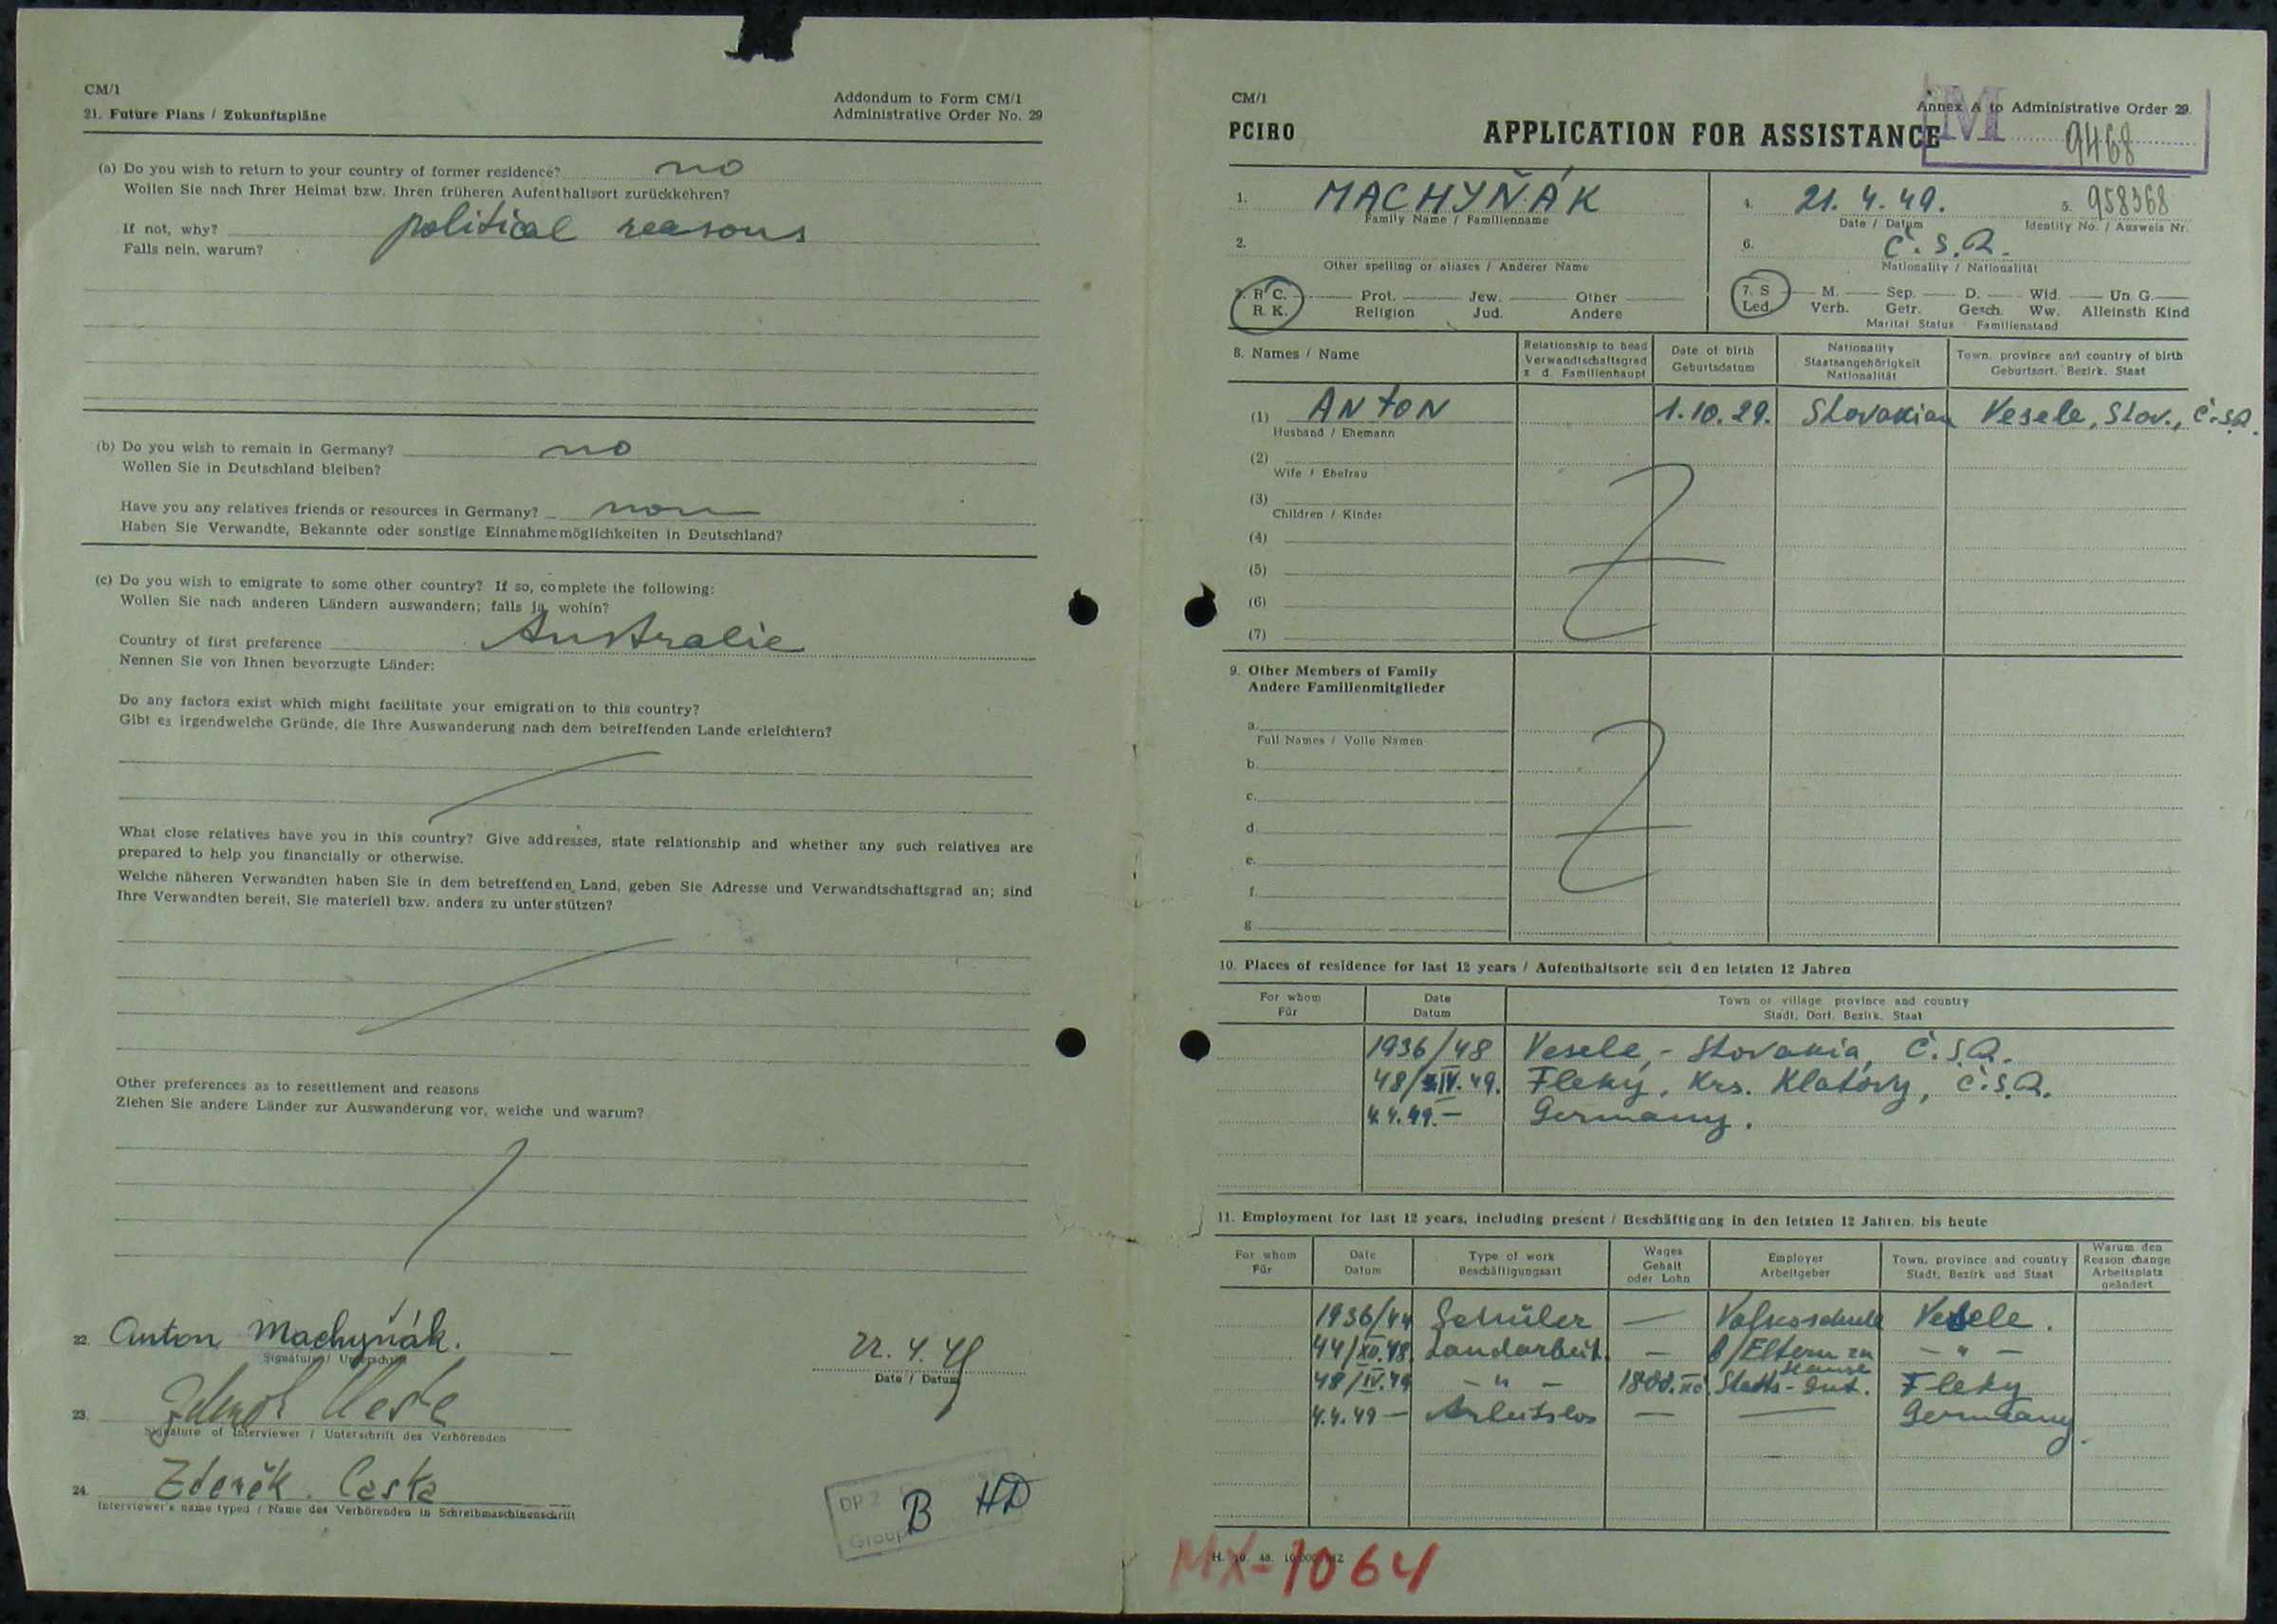 CM/1
Addondum to Form CM/1
21. Future Plans / Zukunftspläne
Administrative Order No. 29
(a) Do you wish to return to your country of former residence? no
Wollen Sie nach Ihrer Heimat bzw. Ihren früheren Aufenthaltsort zurückkehren?
If not, why? political reasons
Falls nein, warum?
(b) Do you wish to remain in Germany? no
Wollen Sie in Deutschland bleiben?
Have you any relatives friends or resources in Germany? non
Haben Sie Verwandte, Bekannte oder sonstige Einnahmemöglichkeiten in Deutschland?
(c) Do you wish to emigrate to some other country? If so, complete the following:
Wollen Sie nach anderen Ländern auswandern; falls ja wohin?
Country of first preference Australie
Nennen Sie von Ihnen bevorzugte Länder:
Do any factors exist which might facilitate your emigration to this country?
Gibt es irgendwelche Gründe, die Ihre Auswanderung nach dem betreffenden Lande erleichtern?
What close relatives have you in this country? Give addresses, state relationship and whether any such relatives are
prepared to help you financially or otherwise.
Welche näheren Verwandten haben Sie in dem betreffenden Land, geben Sie Adresse und Verwandtschaftsgrad an; sind
Ihre Verwandten bereit, Sie materiell bzw. anders zu unterstützen?
Other preferences as to resettlement and reasons
Ziehen Sie andere Länder zur Auswanderung vor, welche und warum?
22. Anton Machyňák.
Signature / Unterschrift
22. 4. 49
Date / Datum
23.
Signature of Interviewer / Unterschrift des Verhörenden
24. Zdeněk Caska
Interviewer's name typed / Name des Verhörenden in Schreibmaschinenschrift
DP 2
Group B HD
CM/1
Annex A to Administrative Order 29.
PCIRO
APPLICATION FOR ASSISTANCE
M 9468
1. MACHYŇÁK
Family Name / Familienname
4. 21. 4. 49.
Date / Datum
5. 958368
Identity No. / Ausweis Nr.
2.
Other spelling or aliases / Anderer Name
6. Č. S. R.
Nationality / Nationalität
3. R C. Prot. Jew. Other
R. K. Religion Jud. Andere
7. S M. Sep. D. Wid. Un G.
Led. Verh. Getr. Gesch. Ww. Alleinsth Kind
Marital Status Familienstand
8. Names / Name
Relationship to head
Verwandtschaftsgrad
z. d. Familienhaupt
Date of birth
Geburtsdatum
Nationality
Staatsangehörigkeit
Nationalität
Town, province and country of birth
Geburtsort, Bezirk, Staat
(1) ANTON 1. 10. 29. Slovakian Vesele, Slov., Č.S.R.
Husband / Ehemann
(2)
Wife / Ehefrau
(3)
Children / Kinder
(4)
(5)
(6)
(7)
9. Other Members of Family
Andere Familienmitglieder
a.
Full Names / Volle Namen
b.
c.
d.
e.
f.
g.
10. Places of residence for last 12 years / Aufenthaltsorte seit den letzten 12 Jahren
For whom
Für
Date
Datum
Town or village province and country
Stadt, Dorf, Bezirk, Staat
1936/48 Vesele, - Slovakia, Č.S.R.
48/IV. 49. Fleky, Krs. Klatovy, Č.S.R.
4. 4. 49. - Germany.
11. Employment for last 12 years, including present / Beschäftigung in den letzten 12 Jahren, bis heute
For whom
Für
Date
Datum
Type of work
Beschäftigungsart
Wages
Gehalt
oder Lohn
Employer
Arbeitgeber
Town, province and country
Stadt, Bezirk und Staat
Warum den
Reason change
Arbeitsplatz
geändert
1936/44 Schüler — Volksschule Vesele.
44/XII. 48. Landarbeit. — b/Eltern zu Hause - " -
48/IV. 49 - " - 1800. Kč. Staats-Gut. Fleky
4. 4. 49 — Arbeitslos — — Germany.
MX-1064